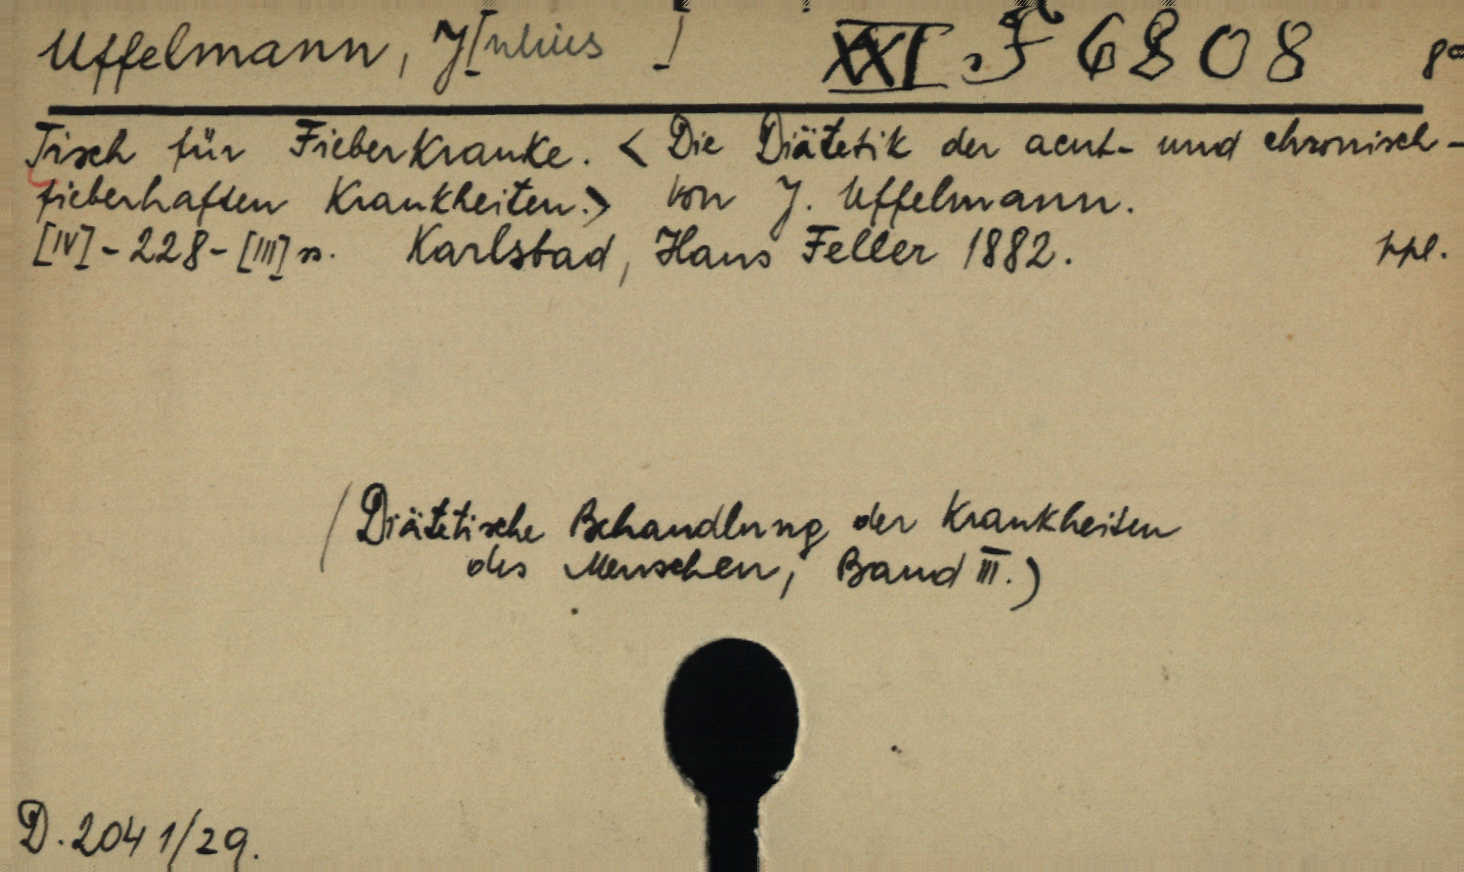 Uffelmann, J[ulius ] XXI. F 6808 8°
Tisch für Fieberkranke. < Die Diätetik der acut- und chronisch-
fieberhaften Krankheiten.> von J. Uffelmann.
[IV]-228-[III] s. Karlsbad, Hans Feller 1882. ppl.
(Diätetische Behandlung der Krankheiten
des Menschen, Band III.)
D. 2041/29.